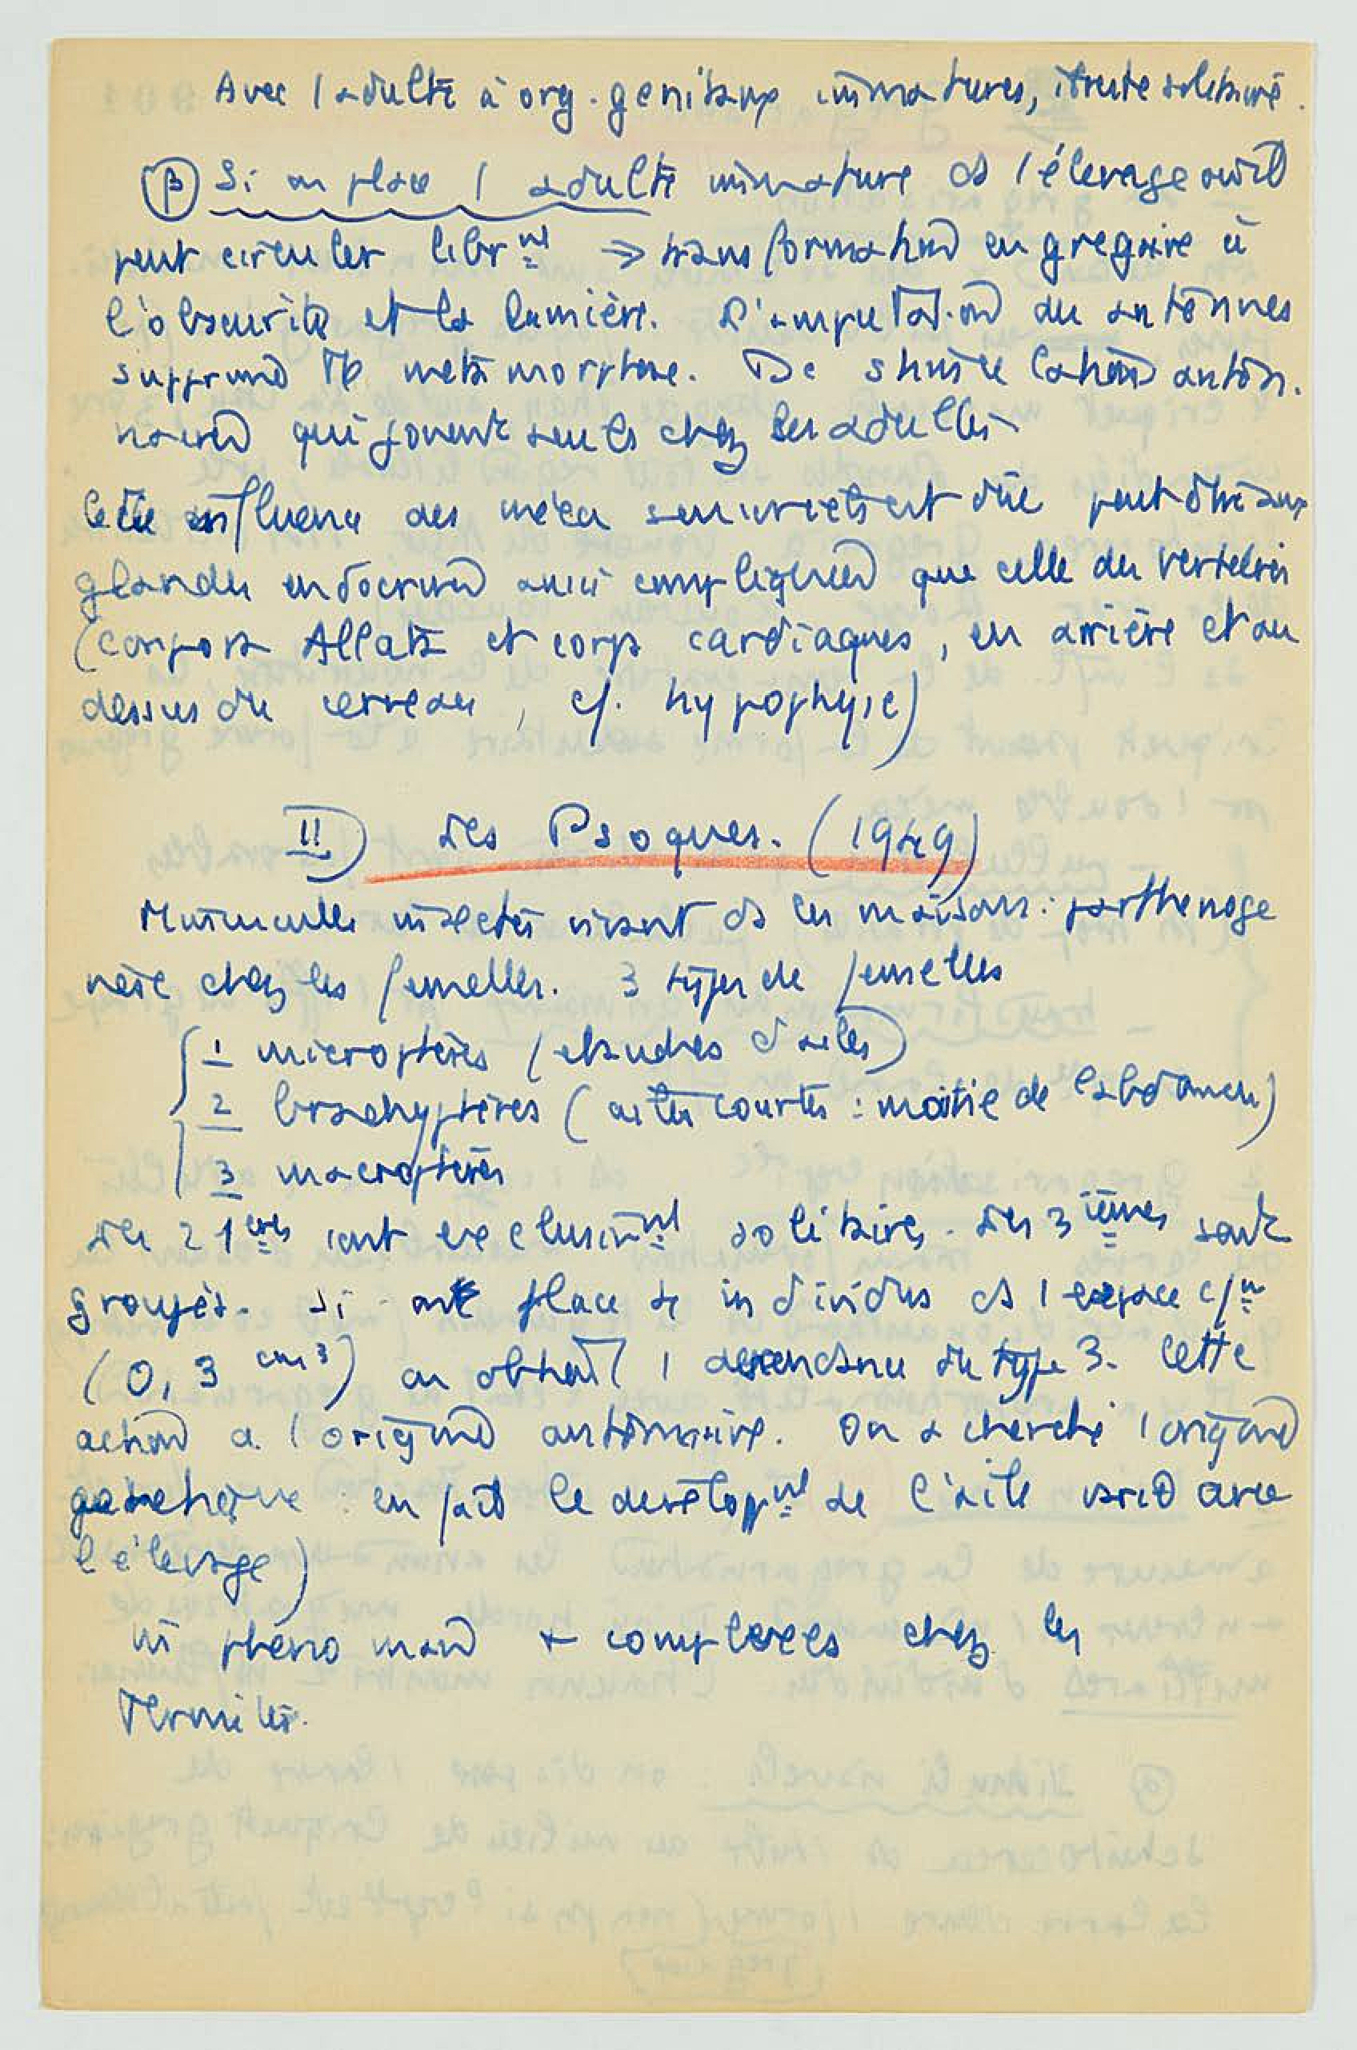 Avec 1 adulte à org. genitaux immatures, reste solitaire.
β Si on place 1 adulte immature ds l'élevage où il
peut circuler librnt ⇒ transformation en gregaire à
l'obscurité et la lumière. L'amputation des antennes
supprime la metamorphose. De stimulations anten.
naires qui jouent seules chez les adultes
Cette influence des mécan sensoriels est dûe peut être aux
glandes endocrines aussi compliquées que celle des vertebrés
(corpora Allata et corps cardiaques, en arrière et au
dessus du cerveau, cf. hypophyse)
II) Les Psoques. (1949)
Minuscules insectes vivant ds les maisons : parthenoge
nèse chez les femelles. 3 types de femelles
1 microptères (ebauches d'ailes)
2 brachyptères (ailes courtes : moitié de l'abdomen)
3 macroptères
Les 2 1eres sont exclusivnt solitaires. Les 3ièmes sont
groupés. Si on place de individus ds 1 espace
(0,3 cm3) on obtient 1 descendance du type 3. Cette
action a 1 origine antennaire. On a cherché 1 origine
genetique : en fait le developnt de l'aile varie avec
l'élevage)
phénomène + complexes chez les
Termites.